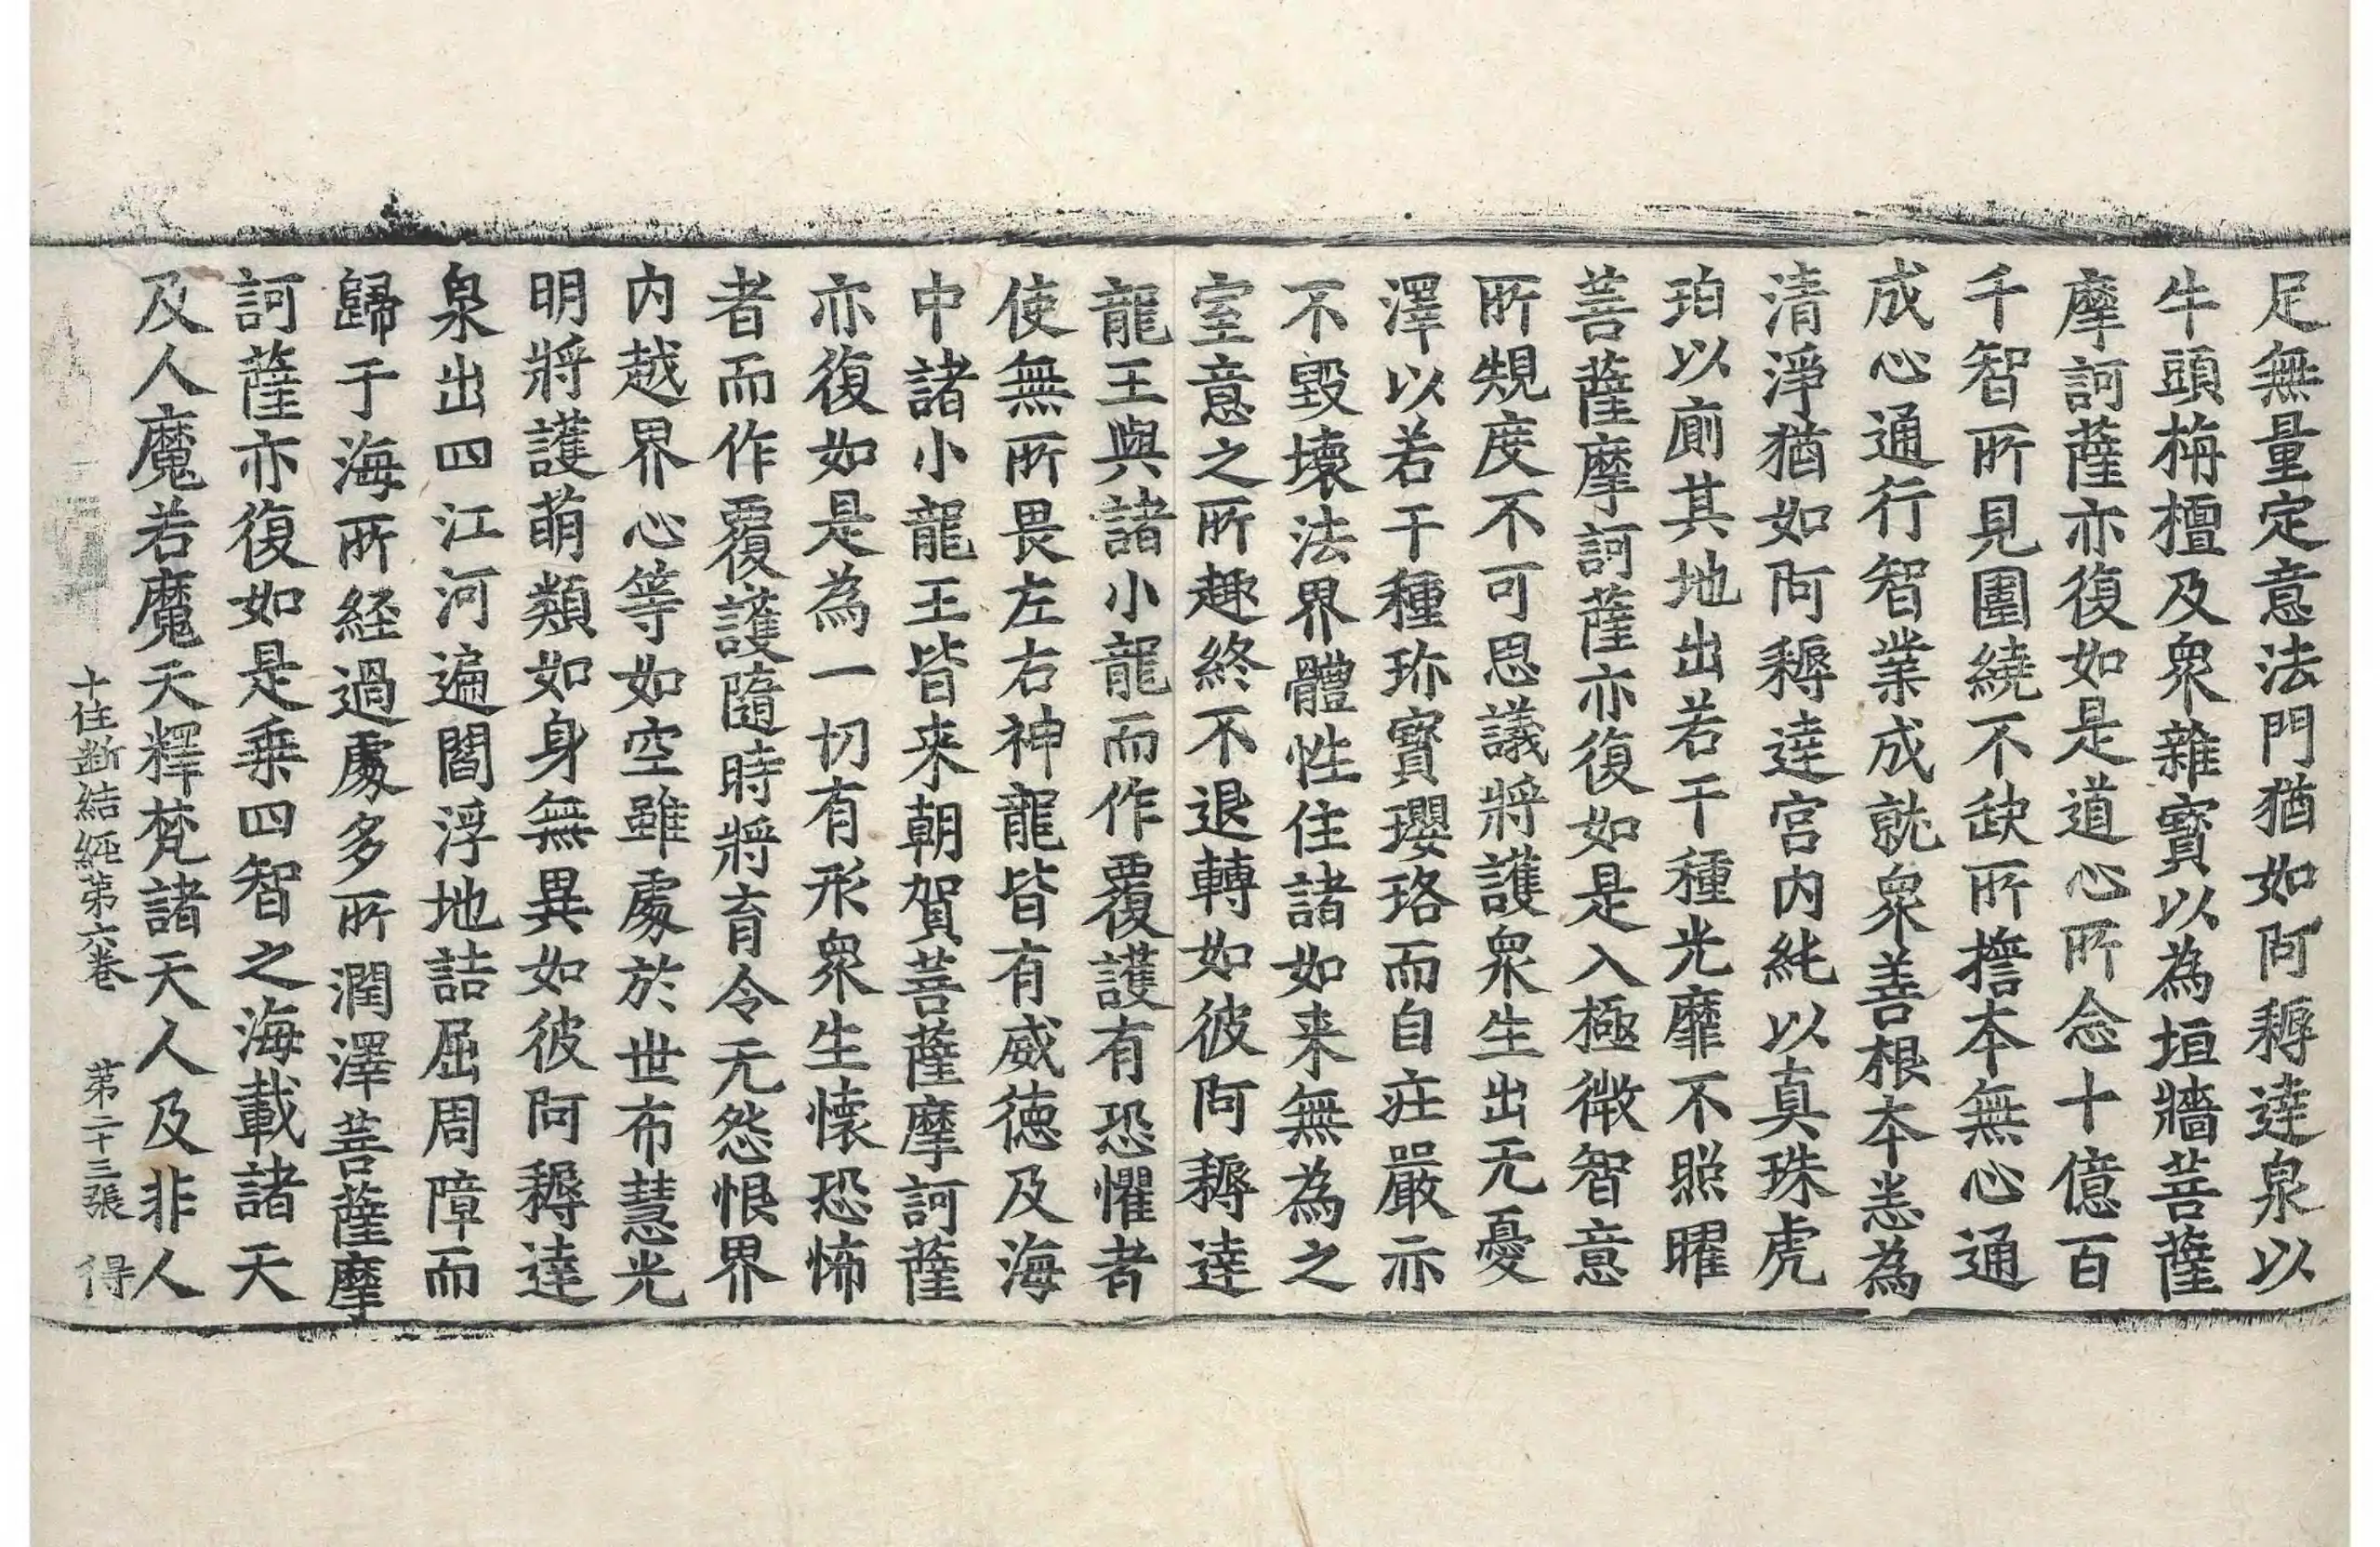 足無量定意法門猶如阿耨達泉以
牛頭栴檀及衆雜寶以為垣牆菩薩
摩訶薩亦復如是道心所念十億百
千智所見圍繞不缺所擔本無心通
成心通行智業成就衆善根本恙為
清淨猶如阿耨達宮内純以真珠虎
珀以廁其地出若干種光靡不照曜
菩薩摩訶薩亦復如是入極微智意
所䂓度不可思議將護衆生出无憂
澤以若干種珎寶瓔珞而自庄嚴示
不毀壞法界體性住諸如来無為之
室意之所趣終不退轉如彼阿耨達
龍王與諸小龍而作覆護有恐懼者
使無所畏左右神龍皆有威德及海
中諸小龍王皆来朝賀菩薩摩訶薩
亦復如是為一切有形衆生懷恐怖
者而作覆護隨時將育令无怨恨界
内越界心等如空雖處於世布慧光
明將護萌類如身無異如彼阿耨達
泉出四江河遍閻浮地詰屈周障而
歸于海所経過處多所潤澤菩薩摩
訶薩亦復如是乗四智之海載諸天
及人魔若魔天釋梵諸天人及非人
十住断結経第六巻 第二十三張 得